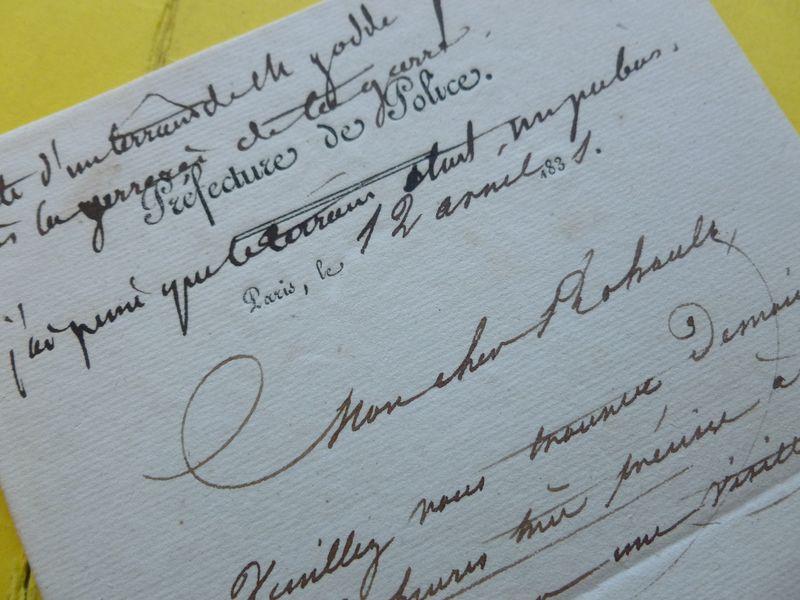 te d'un terrain de M godde
de la guerre
Préfecture de Police.
j'ai pensé que le terrain étant
Paris, le 12 avril 1831.
Mon cher Rohault,
Veuillez vous trouver Demain
heures très précise à
une visite